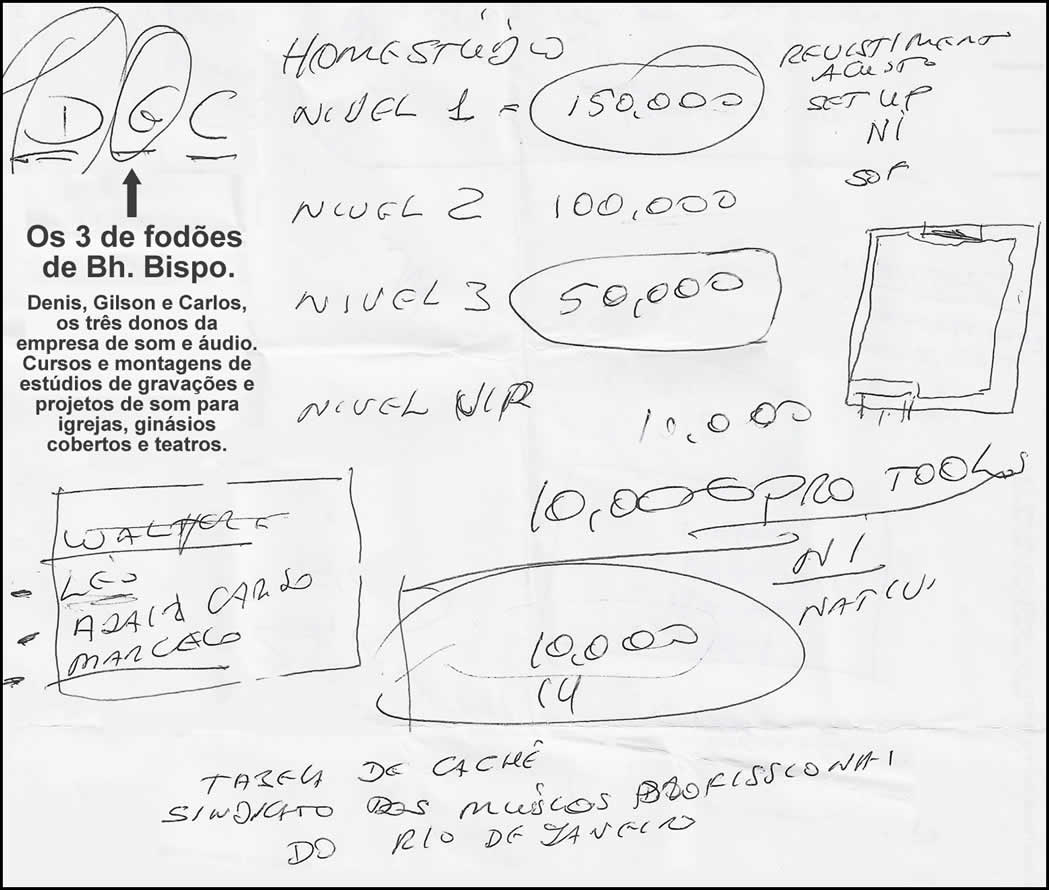 D G C
Os 3 de fodões
de Bh. Bispo.
Denis, Gilson e Carlos,
os três donos da
empresa de som e áudio.
Cursos e montagens de
estúdios de gravações e
projetos de som para
igrejas, ginásios
cobertos e teatros.
HOMESTÚDIO
NIVEL 1 = 150,000
NIVEL 2 100,000
NIVEL 3 50,000
NIVEL VIP 10,000
REVESTIMENTO
SET UP
NI
10,000 PRO TOOLS
NI
LÉO
CARLO
MARCELO
10,000
14
TABELA DE CACHÊ
SINDICATO DOS MUSICOS PROFISSIONAI
DO RIO DE JANEIRO